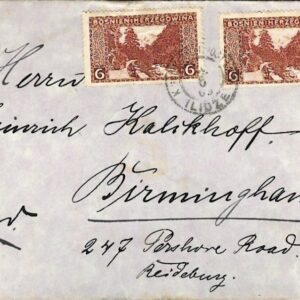 BOSNIEN·HERZEGOWINA
6 6
BOSNIEN·HERZEGOWINA
6 6
ILIDZE
Herrn
einrich Kalikhoff
Birmingham
247 Pershore Road.